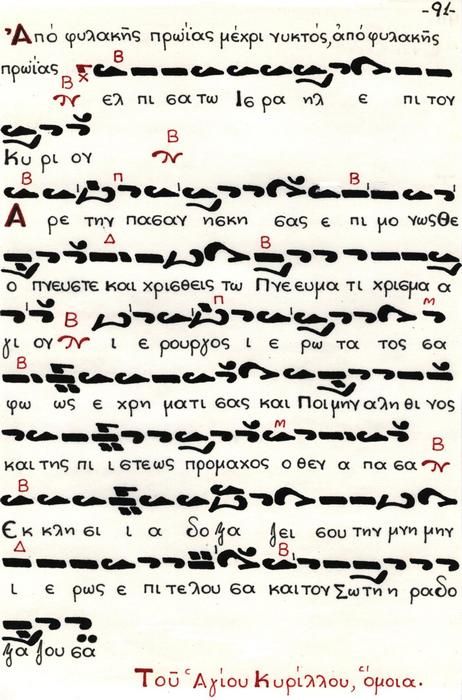 -91-
Ἀπό φυλακῆς πρωΐας μέχρι νυκτός, ἀπό φυλακῆς
πρωΐας Β
Β ελ πι σα τω Ισ ρα ηλ ε πι τον
Κυ ρι ον Β
Β Π Β
Α ρε την πασαν ησκη σας ε πι μο νωςΘε
Δ Β
ο πνευστε και χρισθεις τω Πνεευμα τι χρισμα α
Π Μ
γι ον Β ι ε ρουργος ι ε ρω τα τος σα
Β
φω ως ε χρη ματι σας και Ποιμην αλη θι νος
Μ
και της πι ι στεως προμαχος ο θεν α πα σα Β
Β
Εκ κλη σι ι α δο ξα ζει σου την μνη μην
Δ Β
ι ε ρως ε πι τελου σα και τον Σωτη η ρα δο
ξα ζου σα
Τοῦ Ἁγίου Κυρίλλου, ὅμοια.